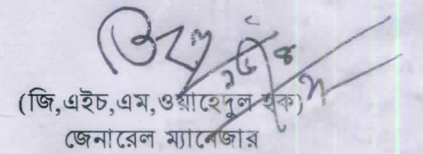 (জি,এইচ,এম,ওয়াহেদুল হক)
জেনারেল ম্যানেজার